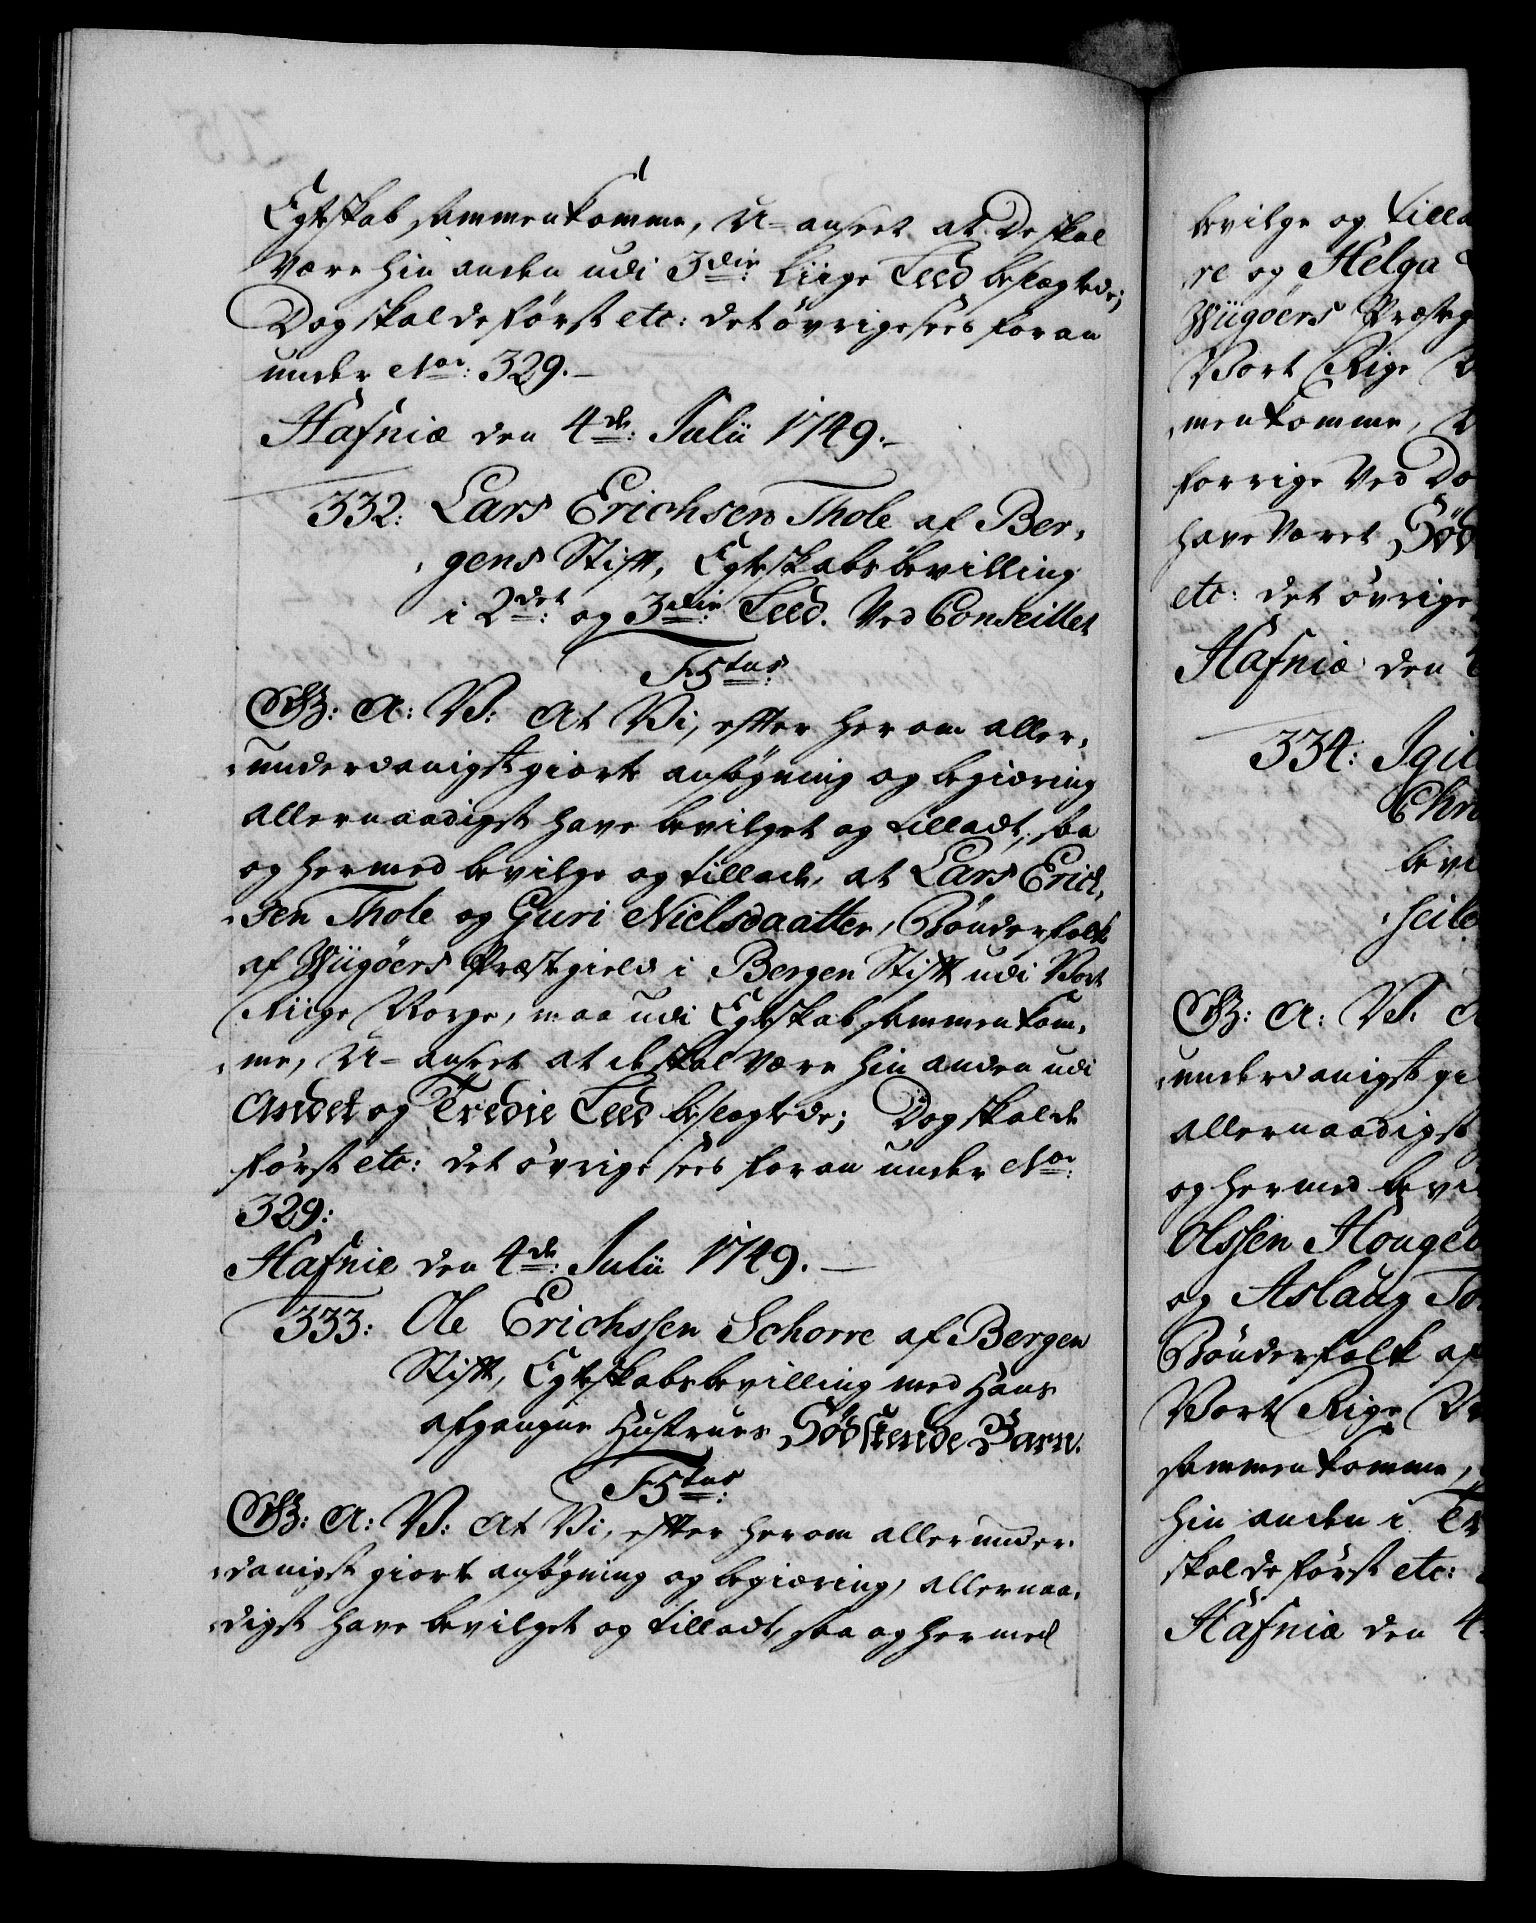 Egteskab sammenkomme, U-anseet at de skal
være hin anden udi 3die: liige Leed beslægtede;
Dog skal de først etc: det øvrige sees foran
under No: 329.
Hafniæ den 4de: Julii 1749.
332: Lars Erichsen Thole af Ber-
gens Stift, Egteskabs bevilling
i 2det: og 3die: Leed. Ved Conseillet
F5tus:
G: A: V: At Vi, efter herom aller-
underdanigst giorte ansøgning og begiæring
allernaadigst have bevilget og tilladt, saa
og hermed bevilge og tillade, at Lars Erich-
sen Thole og Guri Nielsdaatter, Bønderfolk
af Wiigøers Præstegield i Bergen Stift udi Vort
Riige Norge, maa udi Egteskab sammenkom-
me, U-anseet at de skal være hin anden udi
Andet og Tredie Leed beslægtede; Dog skal de
først etc: det øvrige sees foran under No:
329:
Hafniæ den 4de: Julii 1749.
333: Ole Erichssen Schorre af Bergen
Stift, Egteskabs bevilling med Hans
afgangne Hustrues Sødskende Barn.
F5tus:
G: A: V: At Vi, efter herom allerunder-
danigst giorte ansøgning og begiæring, allernaa-
digst have bevilget og tilladt, saa og hermed
bevilge og tilla
re og Helga
Wiigøers Præsteg
Vort Rige
menkomme,
forrige Ved Do
have været Sød
etc: det øvrige
Hafniæ den
334: Igil
Chri
bevi
seile
G: A: V:
underdanigst gi
allernaadigst
og hermed bevi
Olssen Houge
og Aslaug To
Bønderfolk af
Vort Rige
sammenkomme,
hin anden i Tr
skal de først etc:
Hafniæ den 4